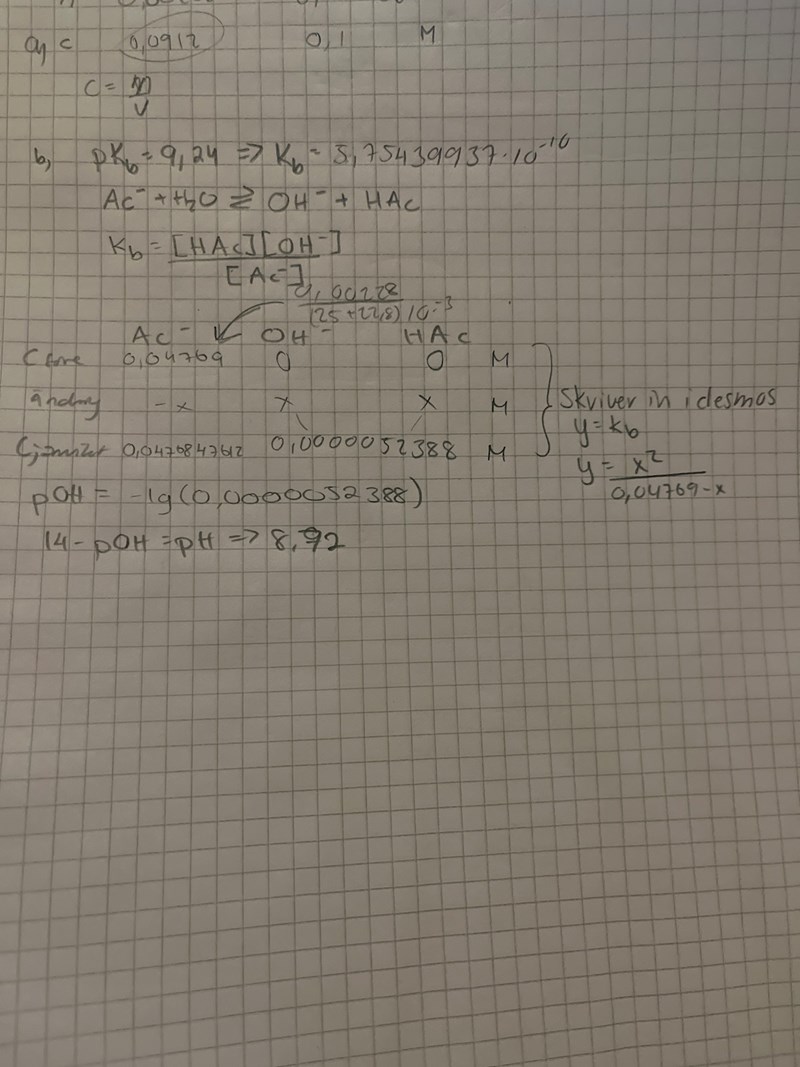 a, c 0,0912 0,1 M
C = n/V
b, pKb = 9,24 => Kb = 5,75439937·10^-10
Ac⁻ + H₂O ⇌ OH⁻ + HAc
Kb = [HAc][OH⁻]/[Ac⁻]
0,00228/(25+22,8)10^-3
Ac⁻ OH⁻ HAc
C före 0,04769 0 0 M
ändring -x x x M
Cjämvikt 0,0476847612 0,0000052388 M
Skriver in i desmos
y = kb
y = x²/0,04769-x
pOH = -lg(0,0000052388)
14 - pOH = pH => 8,72